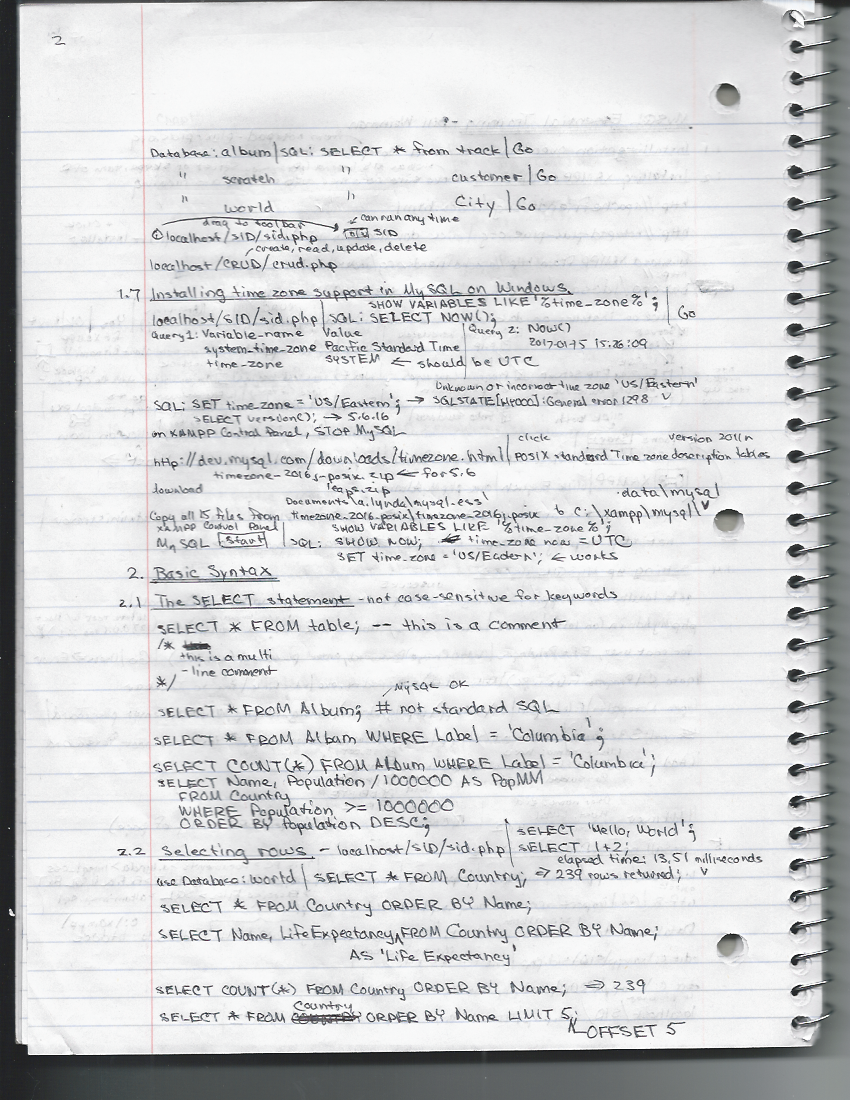 2
Database: album | SQL: SELECT * from track | Go
" scratch " customer | Go
" world " City | Go
drag to toolbar can run any time
localhost/SID/sid.php SID
create, read, update, delete
localhost/CRUD/crud.php
1.7 Installing time zone support in MySQL on Windows
SHOW VARIABLES LIKE '%time-zone%';
localhost/SID/sid.php | SQL: SELECT NOW(); | Go
Query 1: Variable-name Value Query 2: NOW()
system-time-zone Pacific Standard Time 2017-01-15 15:26:09
time-zone SYSTEM ← should be UTC
Unknown or incorrect time zone 'US/Eastern'
SQL: SET time_zone = 'US/Eastern'; → SQLSTATE[HY000]: General error 1298
SELECT version(); → 5.6.16
on XAMPP Control Panel, STOP MySQL
click version 2011n
http://dev.mysql.com/downloads/timezone.html | POSIX standard Time zone description tables
timezone-2016j-posix.zip ← for 5.6
download
Documents\a.lynda\mysql-es3\ data\mysql
Copy all 15 files from timezone_2016_posix\timezone_2016j_posix to C:\xampp\mysql\
XAMPP Control Panel SHOW VARIABLES LIKE '%time-zone%';
MySQL Start | SQL: SHOW NOW; ← time-zone now = UTC
SET time_zone = 'US/Eastern'; ← works
2. Basic Syntax
2.1 The SELECT statement - not case-sensitive for keywords
SELECT * FROM table; -- this is a comment
/*
this is a multi
- line comment
*/
MySQL OK
SELECT * FROM Album; # not standard SQL
SELECT * FROM Album WHERE Label = 'Columbia';
SELECT COUNT(*) FROM Album WHERE Label = 'Columbia';
SELECT Name, Population / 1000000 AS PopMM
FROM Country
WHERE Population >= 1000000
ORDER BY Population DESC;
SELECT 'Hello, World';
2.2 Selecting rows - localhost/SID/sid.php | SELECT 1+2;
elapsed time: 13.51 milliseconds
use Database: world | SELECT * FROM Country; ⇒ 239 rows returned;
SELECT * FROM Country ORDER BY Name;
SELECT Name, LifeExpectancy FROM Country ORDER BY Name;
AS 'Life Expectancy'
SELECT COUNT(*) FROM Country ORDER BY Name; ⇒ 239
Country
SELECT * FROM ORDER BY Name LIMIT 5;
OFFSET 5